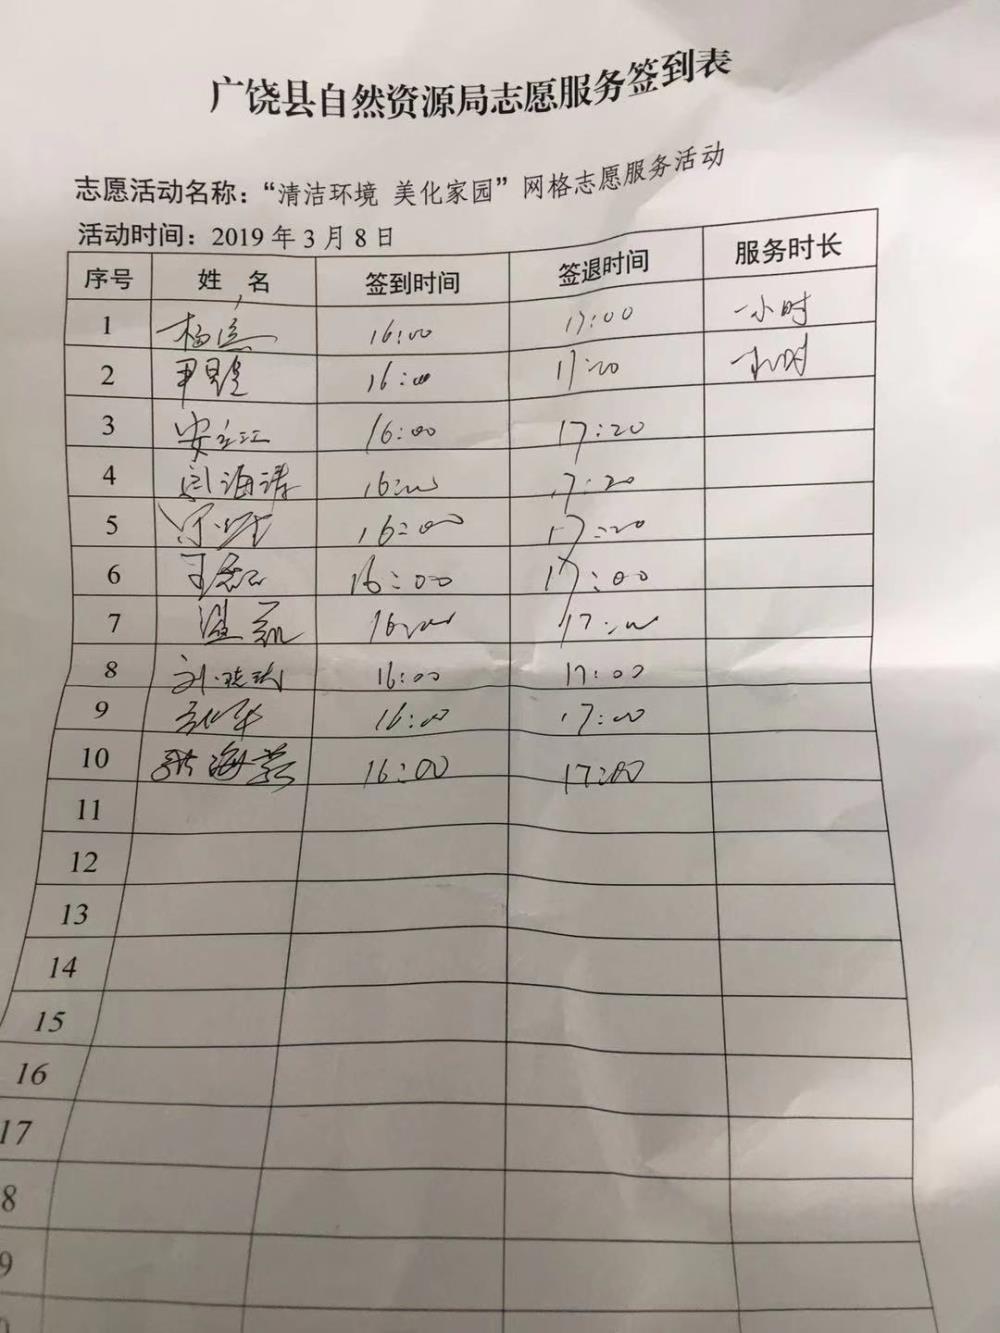 广饶县自然资源局志愿服务签到表
志愿活动名称：“清洁环境 美化家园”网格志愿服务活动
活动时间：2019年3月8日
序号 姓 名 签到时间 签退时间 服务时长
1 16:00 17:00 一小时
2 16:00 17:20 一小时
3 安立江 16:00 17:20
4 闫海涛 16:00 17:20
5 16:00 17:20
6 16:00 17:00
7 温凯 16:00 17:00
8 16:00 17:00
9 16:00 17:00
10 张海燕 16:00 17:00
11
12
13
14
15
16
17
8
9